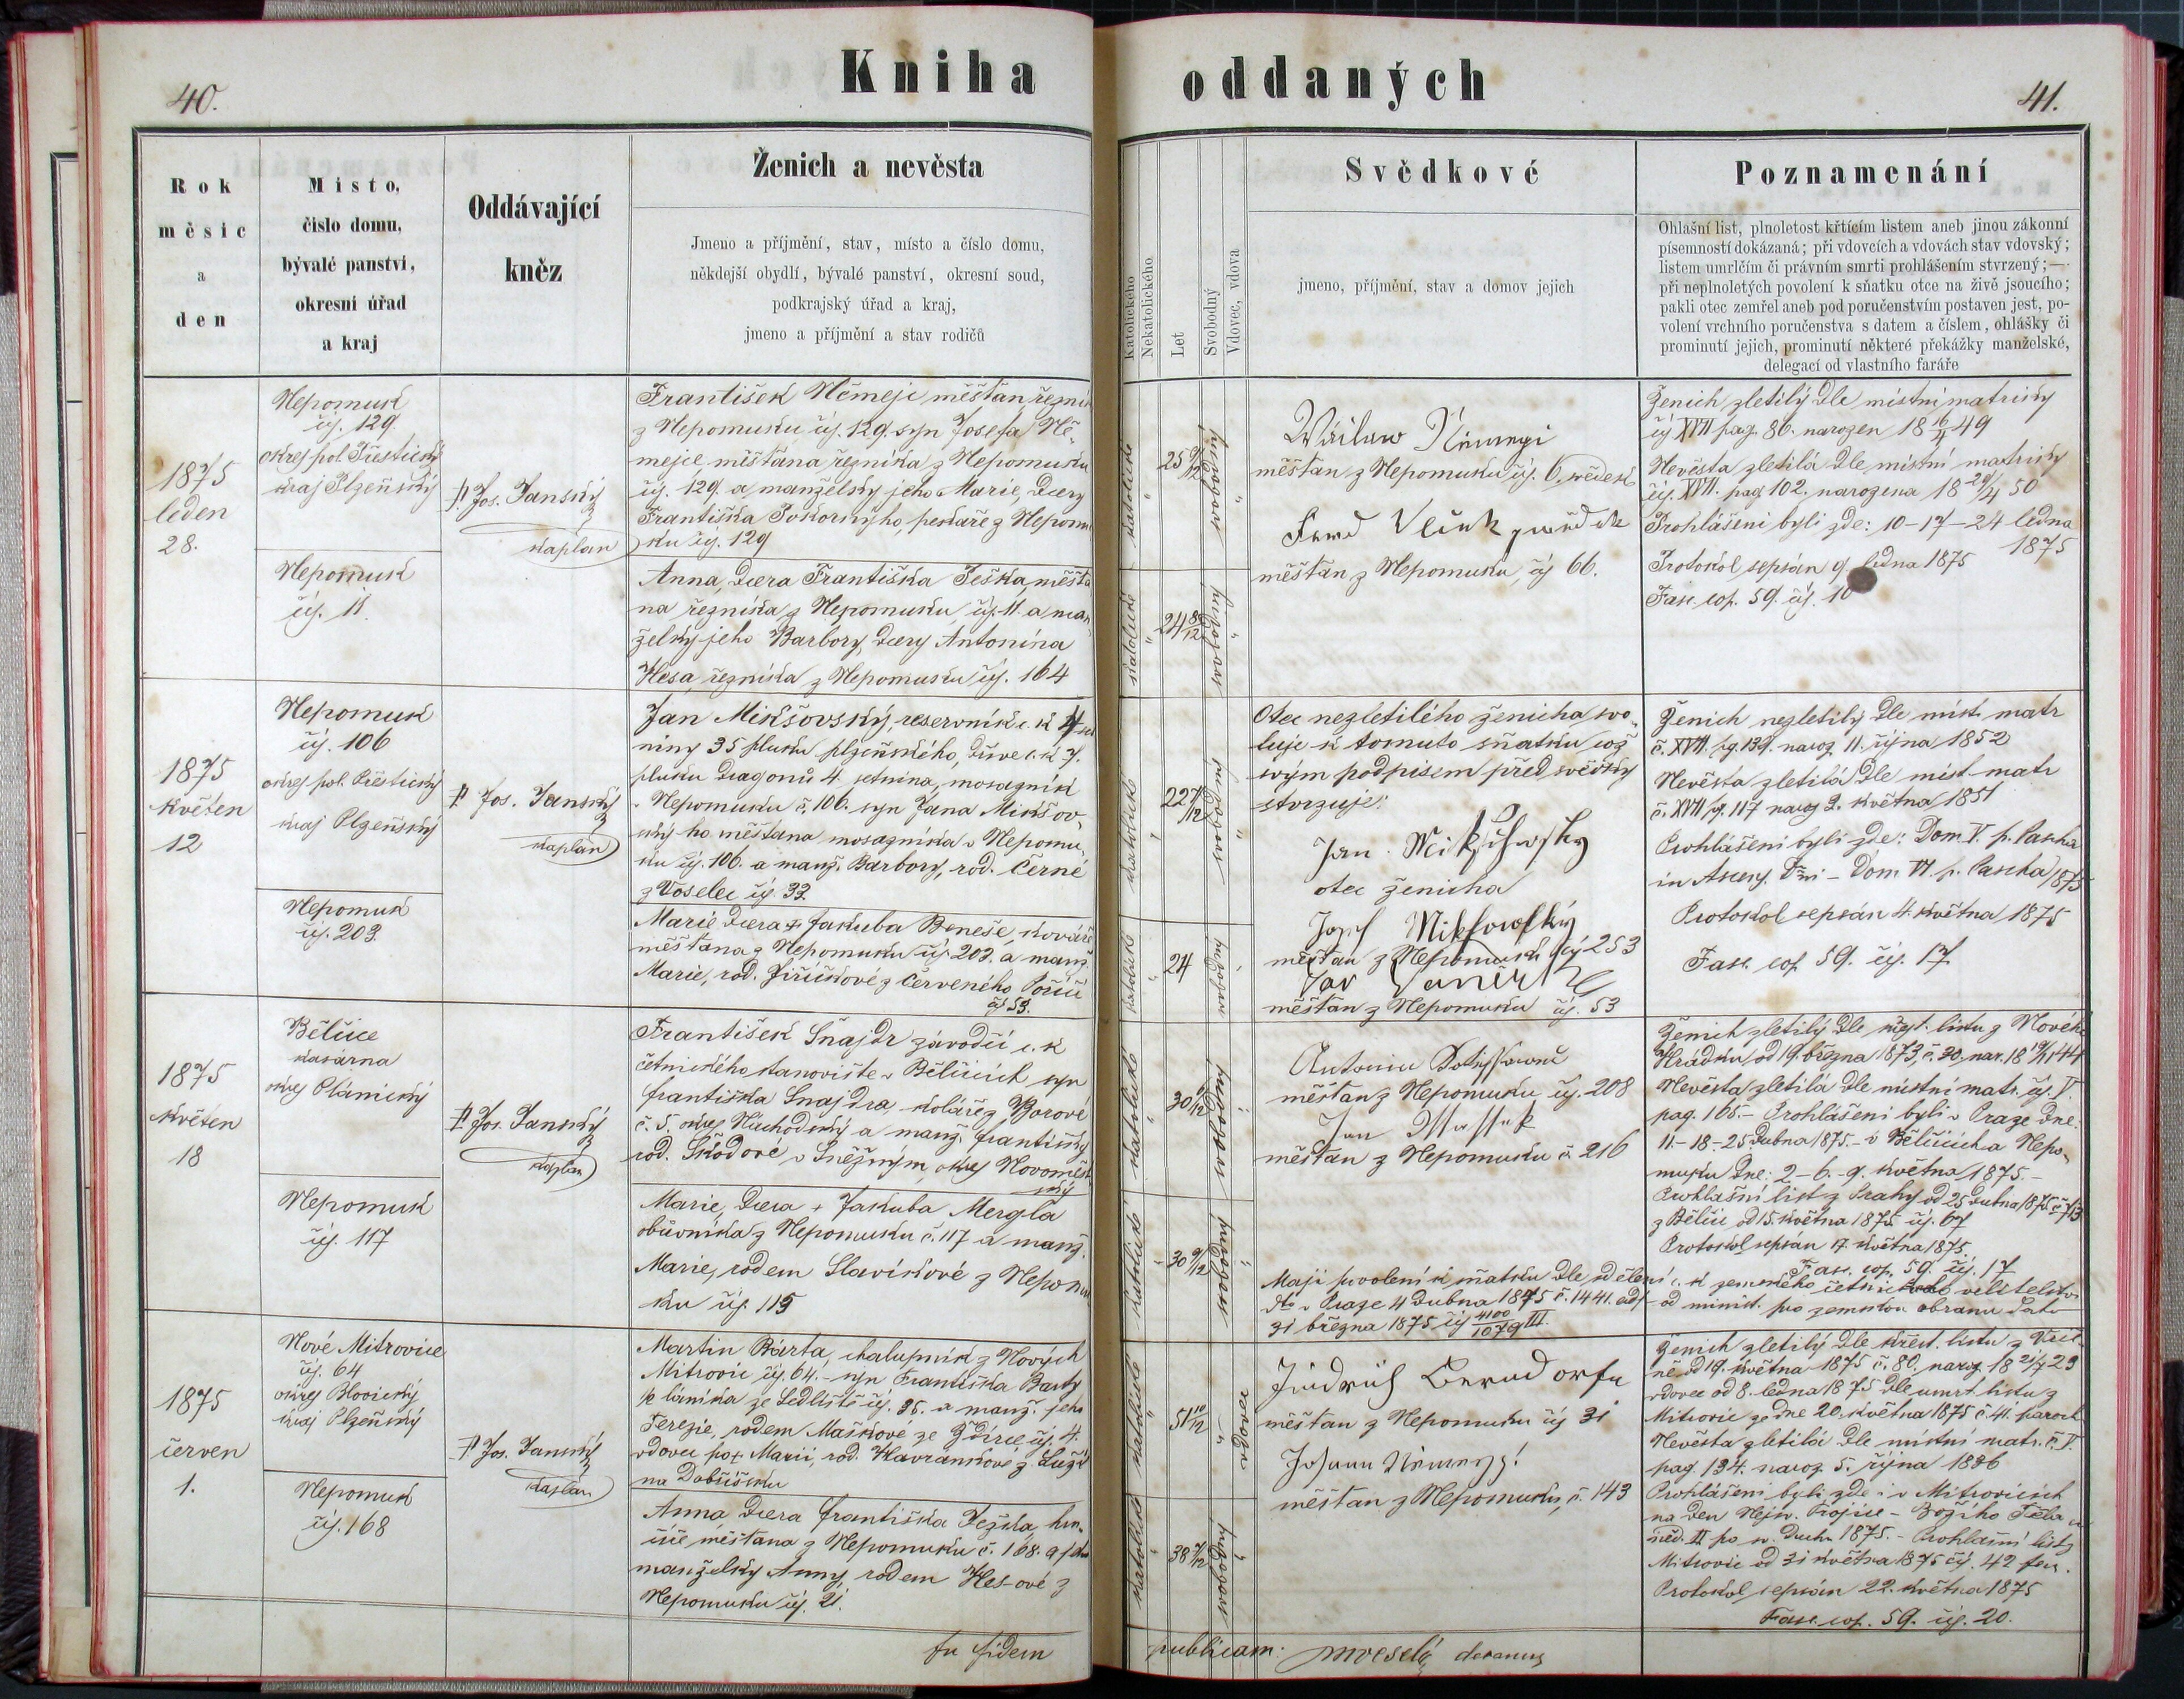 40.
Kniha
Rok
měsíc
a
den
Místo,
číslo domu,
bývalé panství,
okresní úřad
a kraj
Oddávající
kněz
Ženich a nevěsta
Jmeno a příjmění, stav, místo a číslo domu,
někdejší obydlí, bývalé panství, okresní soud,
podkrajský úřad a kraj,
jmeno a příjmění a stav rodičů
1875
leden
28.
Nepomuk
čís. 129
okres pol. Přestický
kraj Plzeňský
Nepomuk
čís. 11.
P. Jos. Janský
kaplan
František Němejc měšťan, řezník
z Nepomuku, čís. 129. syn Josefa Ně-
mejce měšťana řezníka z Nepomuku
čís. 129. a manželky jeho Marie, dcery
Františka Pokorného, pekaře z Nepomu
ku čís. 129
Anna, dcera Františka Ješka, měšťa
na řezníka z Nepomuku, čís. 11. a man
želky jeho Barbory, dcery Antonína
Hesa, řezníka z Nepomuku čís. 164
1875
květen
12
Nepomuk
čís. 106
okres pol. Přestický
kraj Plzeňský
Nepomuk
čís. 203.
P. Jos. Janský
kaplan
Jan Mikšovský, reservník c. k. 4 set
niny 35 pluku plzeňského, dříve c. k. 7.
pluku dragonů 4. setnina, mosazník
v Nepomuku č. 106. syn Jana Mikšov-
ský-ho měšťana mosazníka v Nepomu-
ku čís. 106. a manž. Barbory, rod. Černé
z Voselec čís. 33.
Marie dcera + Jakuba Beneše, kováře
měšťana z Nepomuku čís. 203. a manž.
Marie, rod. Jiříčkové z Červeného Poříčí
čís 53.
1875
květen
18
Bělčice
kasárna
okres Plánický
Nepomuk
čís. 117
P. Jos. Janský
kaplan
František Šnajdr závodčí c. k.
četnického stanoviště v Bělčicích syn
Františka Šnajdra, koláře z Borové
č. 5. okres Náchodský a manž. Františky
rod. Škodové v Sněžným, okres Novoměst
ský
Marie, dcera + Jakuba Mergla
obuvníka z Nepomuku č. 117 a manž.
Marie, rodem Slavíkové z Nepomu
ku čís. 115
1875
červen
1.
Nové Mitrovice
čís. 64
okres Blovický
kraj Plzeňský
Nepomuk
čís. 168
P. Jos. Janský
kaplan
Martin Bárta, chalupník z Nových
Mitrovic čís. 64. - syn Františka Barty
ze Sedliště čís. 35. a manž. jeho
Terezie, rodem Maškové ze Ždírce, čís. 4.
vdovec po + Marii, rod. Havránkové z
na Dobříšsku
Anna dcera Františka Ježka, hrn-
číře měšťana z Nepomuku č. 168. a jeho
manželky Anny, rodem Hes-ové z
Nepomuku čís. 21.
In fidem
oddaných
41.
Katolického
Nekatolického
Let
Svobodný
Vdovec, vdova
Svědkové
jmeno, příjmění, stav a domov jejich
Poznamenání
Ohlašní list, plnoletost křtícím listem aneb jinou zákonní
písemností dokázaná; při vdovcích a vdovách stav vdovský;
listem umrlčím či právním smrti prohlášením stvrzený; —
při neplnoletých povolení k sňatku otce na živě jsoucího;
pakli otec zemřel aneb pod poručenstvím postaven jest, po-
volení vrchního poručenstva s datem a číslem, ohlášky či
prominutí jejich, prominutí některé překážky manželské,
delegací od vlastního faráře
katolické
25 9/12
svobodný
katolické
24 8/12
svobodný
Václaw Němegi
měšťan z Nepomuku čís. 6, svědek
Ferd Vlček svědek
měšťan z Nepomuku, čís 66.
Ženich zletilý dle místní matriky
čís XVII pag. 86. narozen 18 16/4 49
Nevěsta zletilá dle místní matriky
čís. XVII. pag 102. narozena 18 29/4 50
Prohlášeni byli zde: 10-17-24 ledna
1875
Protokol sepsán 9. ledna 1875
Fasc. cop. 59. čís. 10
katolické
22 7/12
svobodný
katolické
24
svobodný
Otec nezletilého ženicha svo-
luje k tomuto sňatku což
svým podpisem před svědky
stvrzuje:
Jan Mikschofsky
otec ženicha
Josef Mikschowsky
měšťan z Nepomuk čís 253
měšťan z Nepomuku čís. 53
Ženich nezletilý dle míst. matr
č. XVII. pg. 139. naroz. 11. října 1852
Nevěsta zletilá dle míst. matr
č. XVII pg. 117 naroz 2. května 1851
Prohlášeni byli zde: Dom. V. p. Pascha
in Ascens. Dni - Dom VI p. Pascha 1875
Protokol sepsán 4. května 1875
Fasc. cop. 59. čís. 17
katolické
30 6/12
svobodný
katolické
30 9/12
svobodný
Antonin
měšťan z Nepomuku čís. 208
Jan
měšťan z Nepomuku č. 216
Ženich zletilý dle křest. listu z Nového
Hrádku od 19. března 1873, č. 30. nar. 18 19/11 44
Nevěsta zletilá dle místní matr. čís. V.
pag. 165. - Prohlášeni byli v Praze dne
11-18-25 dubna 1875. - v Bělčicích a Nepo-
muku dne: 2-6-9. května 1875. -
Prohlašní list z Prahy od 25 dubna 1875 č 713
z Bělčic od 15. května 1875 čís. 67
Protokol sepsán 17. května 1875.
Fasc. cop. 59. čís. 17
Mají povolení k sňatku dle sdělení c. k. zemského četnického velitelstva
dto v Praze 4 dubna 1875 č. 1441. od minist. pro zemskou obranu dato
31 března 1875 čís 4100/1079 III.
katolické
51 10/12
vdovec
katolické
38 7/12
svobodný
Jindřich Berndorfn
měšťan z Nepomuku čís 31
Johann Němeyz!
měšťan z Nepomuku, č. 143
Ženich zletilý dle křest. listu z
od 19. května 1875 č. 80. naroz. 18 21/7 23
vdovec od 8. ledna 1875 dle umrt. listu z
Mitrovic ze dne 20. května 1875 č. 41.
Nevěsta zletilá dle místní matr. č. V.
pag. 134. naroz. 5. října 1836
Prohlášeni byli zde i v Mitrovicích
na den Nejsv. Trojice - Božího Těla a
něd. II po sv. Duchu 1875. - Prohlašní list z
Mitrovic od 31 května 1875 čís. 42
Protokol sepsán 22. května 1875
Fasc. cop. 59. čís. 20.
publicam:
decanus